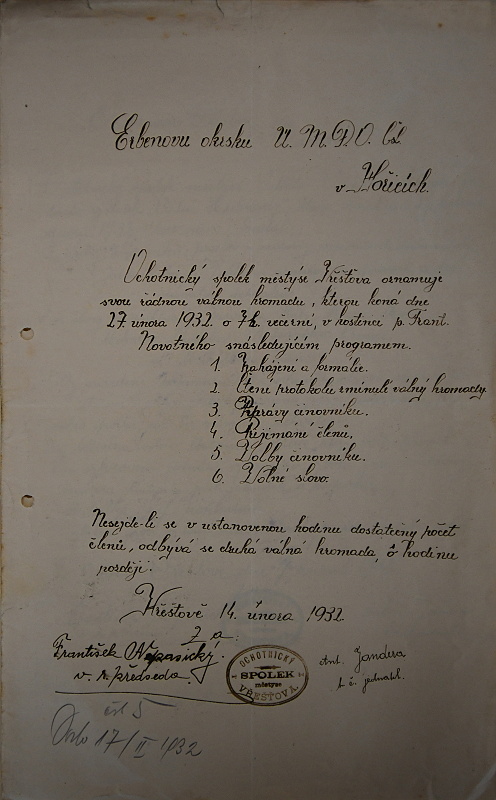 Erbenovu okrsku Ú. M. D. O. čsl.
v Hořicích.
Ochotnický spolek městýse Vřešťova oznamuje
svou řádnou válnou hromadu, kterou koná dne
27. února 1932 o 7h. večerní, v hostinci p. Frant.
Novotného snásledujícím programem.
1. Zahájení a formálie.
2. Čtení protokolu zminulé válný hromady.
3. Zprávy činovníku.
4. Přijímání členů.
5. Volby činovníku.
6. Volné slovo.
Nesejde-li se v ustanovenou hodinu dostatečný počet
členů, odbývá se druhá válná hromada, o hodinu
později.
Vřešťově 14. února 1932.
Za:
František
v. r. předseda.
OCHOTNICKÝ
SPOLEK
městyse
VŘEŠŤOVA
Ant. Jandera
t. č. jednatel.
čsl 5
Došlo 17/II 1932